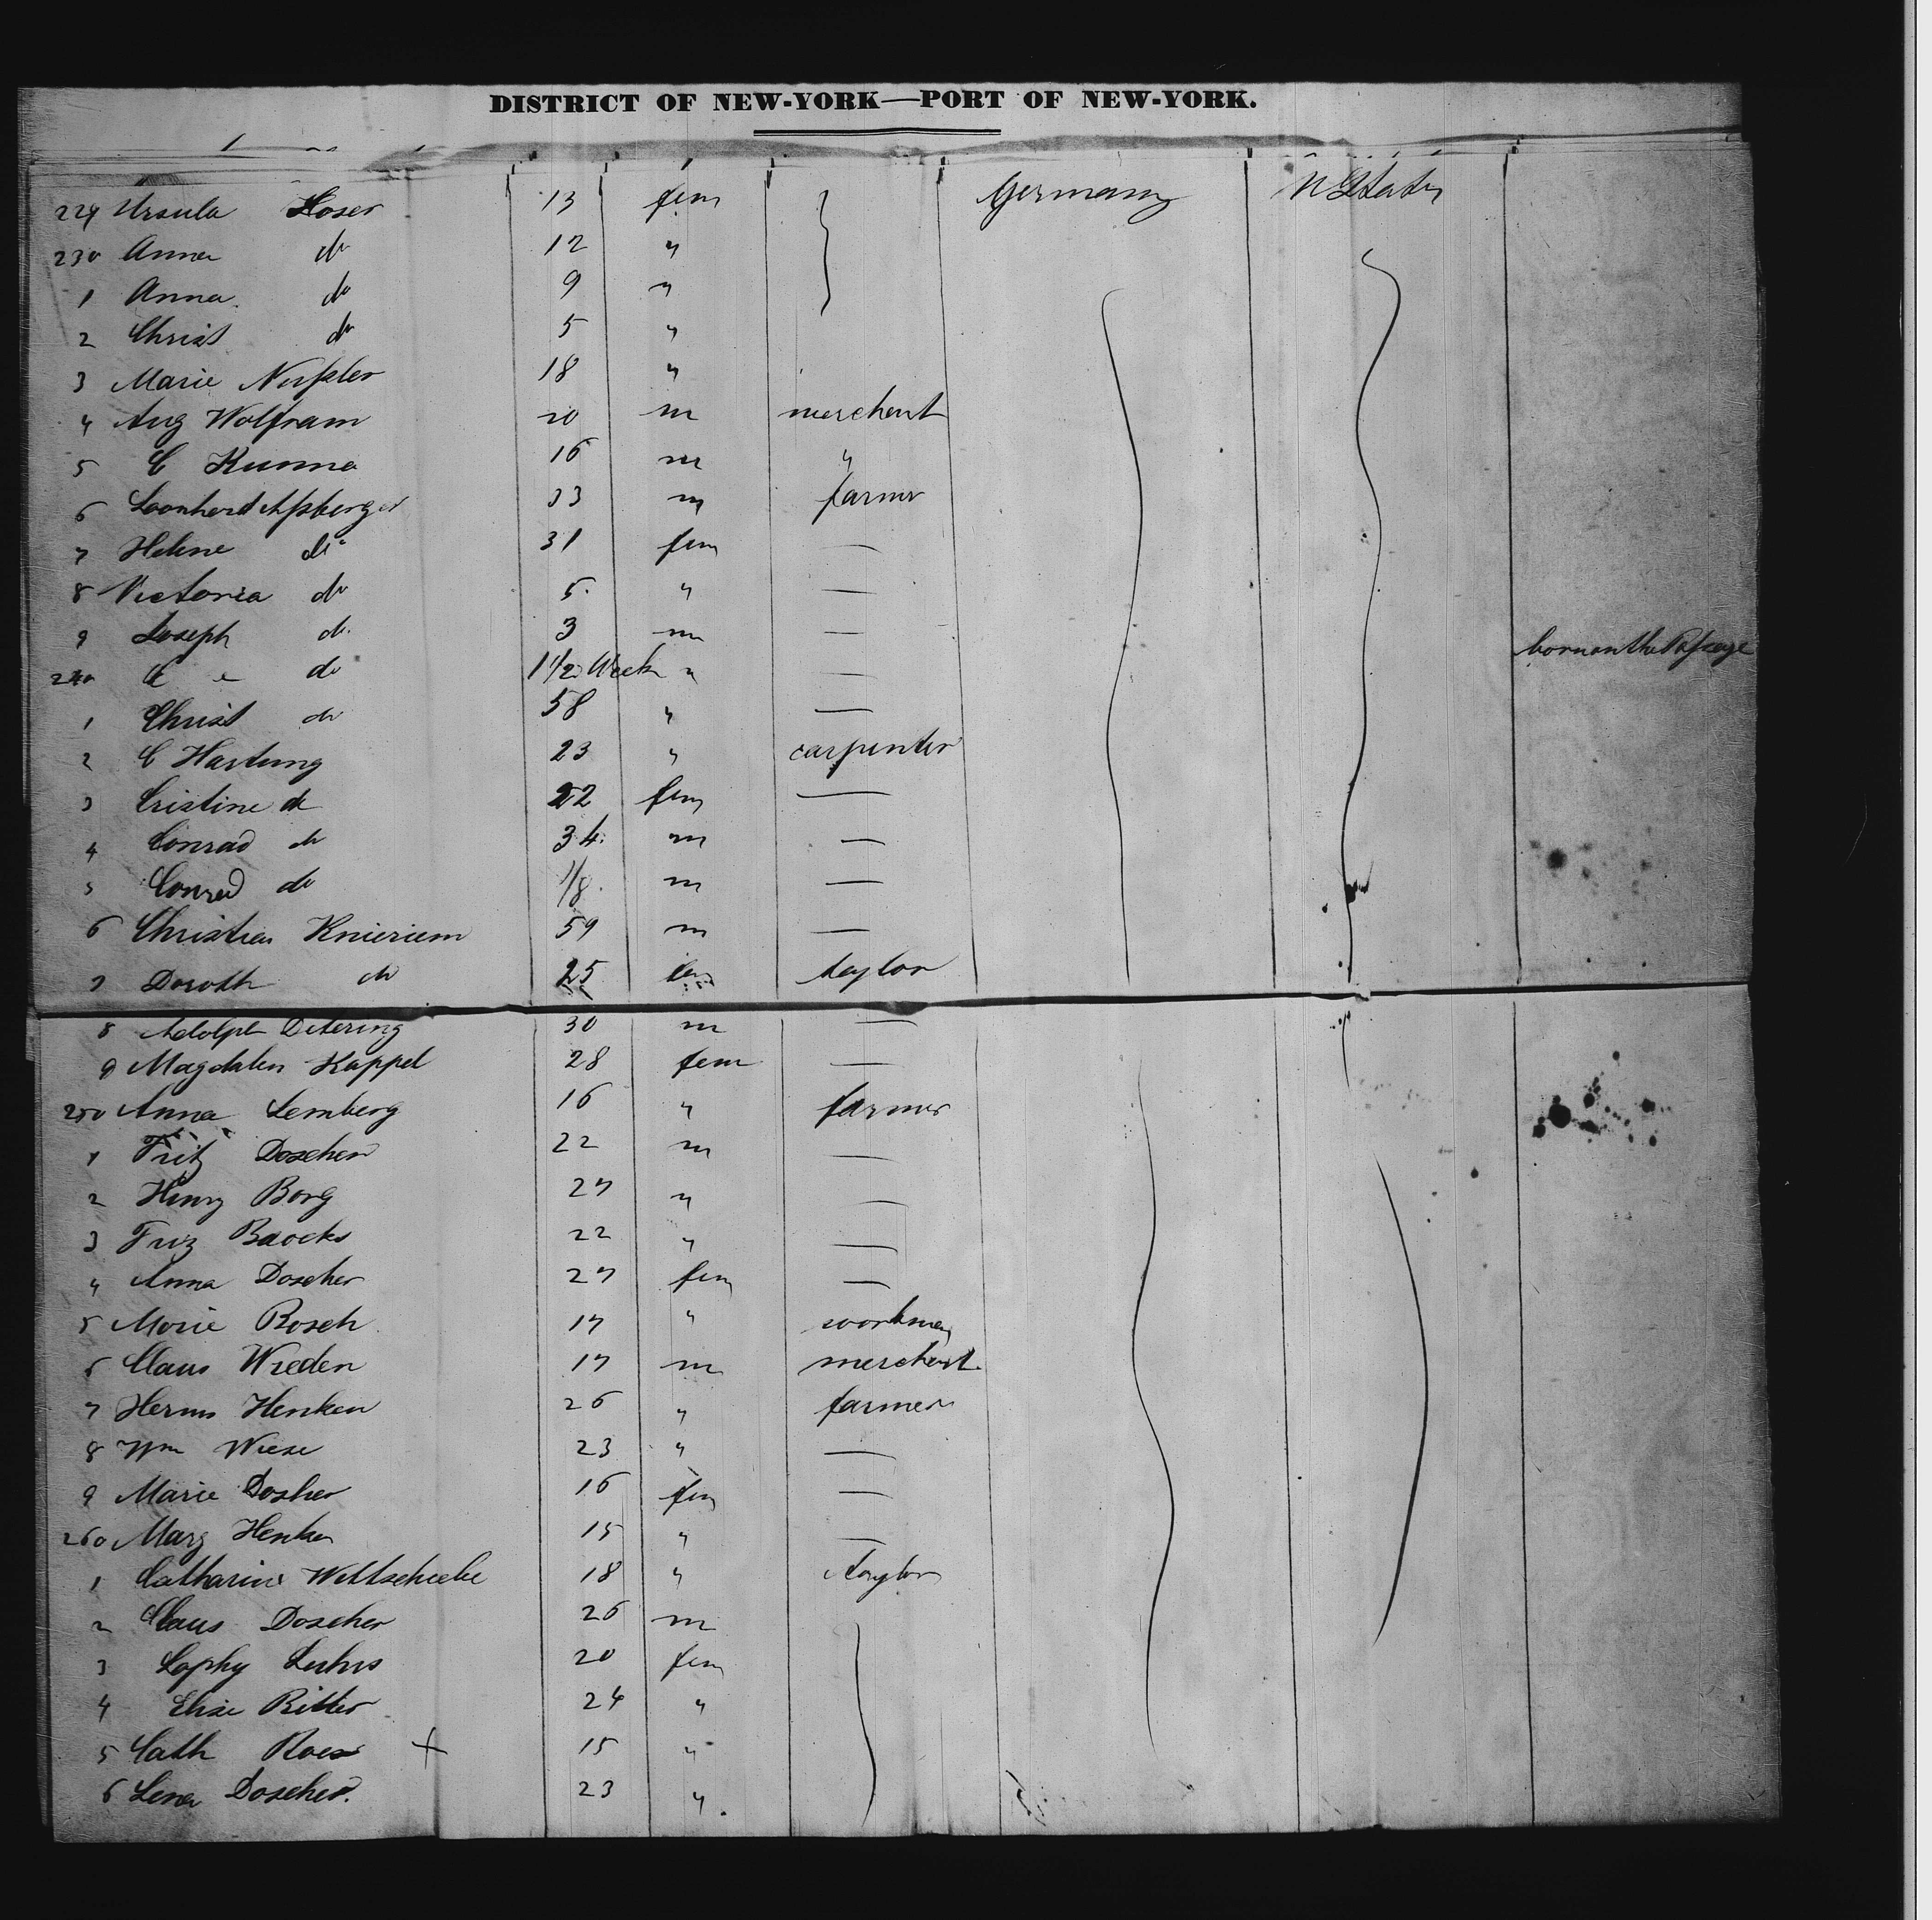 DISTRICT OF NEW-YORK—PORT OF NEW-YORK.
229 Ursula Hoser 13 fem Germany U States
230 Anna do 12 "
1 Anna do 9 "
2 Christ do 5 "
3 Marie Nußler 18 "
4 Aug Wolfram 20 m merchant
5 C Kunna 16 m "
6 Leonhard 33 m farmer
7 Helene do 31 fem —
8 Victoria do 5 " —
9 Joseph do 3 m —
240 C do 1 1/2 Week " — born on the Passage
1 Christ do 58 " —
2 C Hartung 23 " carpenter
3 Cristine do 22 fem —
4 Conrad do 34 m —
5 Conrad do 1/8 m —
6 Christian Knieriem 59 m —
7 Doroth do 25 fem taylor
8 Adolph Detering 30 m —
9 Magdalen Kappel 28 fem —
250 Anna Lemberg 16 " farmer
1 Fritz Doscher 22 m —
2 Henry Borg 27 " —
3 Friz Baocks 22 " —
4 Anna Doscher 27 fem —
5 Marie Bosch 17 " workman
6 Claus Wreden 17 m merchant
7 Herms Henken 26 " farmer
8 Wm Wiese 23 " —
9 Marie Dosher 16 fem —
260 Marg Henken 15 " —
1 Catharine 18 " Taylor
2 Claus Doscher 26 m
3 Sophy Luhrs 20 fem
4 Elise Ritter 24 "
5 Cath + 15 "
6 Lena Doscher. 23 "